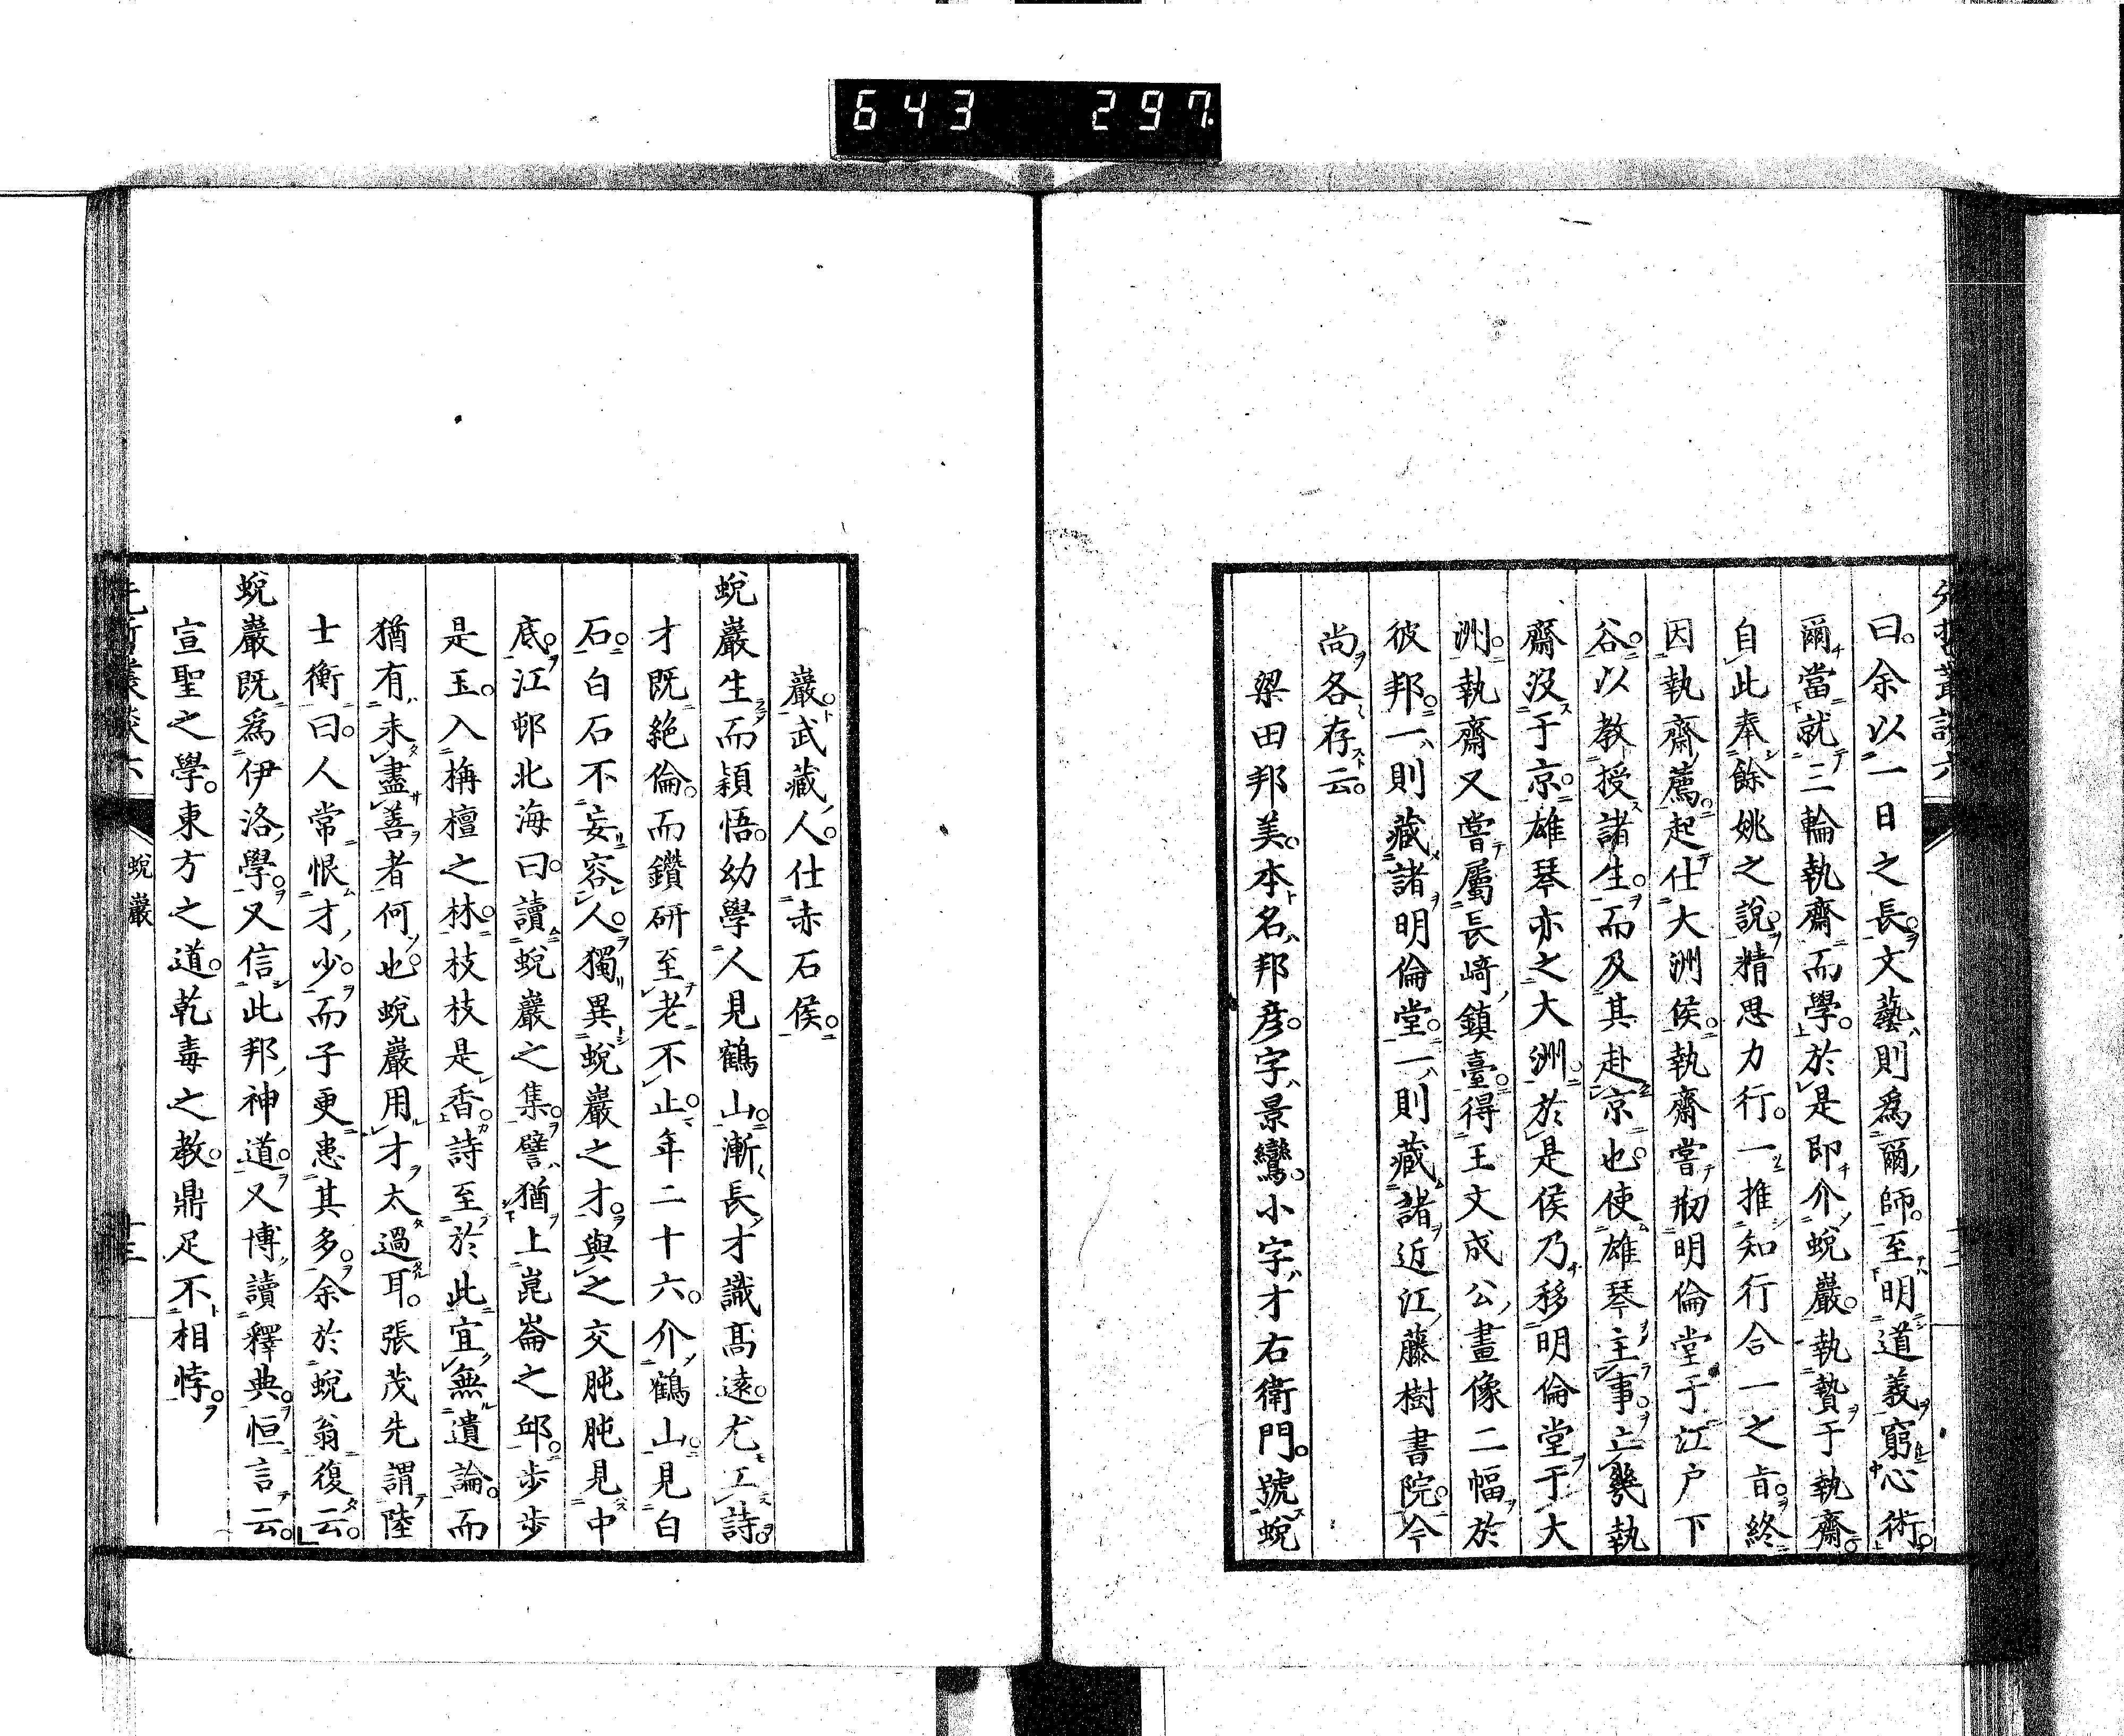 643 297.
曰。余以一日之長。文藝則爲爾師。至明道義窮心術。
爾當就三輪執齋而學。於是即介蛻巖。執贄于執齋。
自此奉餘姚之說。精思力行。一推知行合一之旨。終
因執齋薦。起仕大洲侯。執齋嘗剏明倫堂于江户下
谷。以教授諸生。而及其赴京也。使雄琴主事。亡幾執
齋沒于京。雄琴亦之大洲。於是侯乃移明倫堂于大
洲。執齋又嘗屬長崎鎮臺。得王文成公畫像二幅於
彼邦。一則藏諸明倫堂。一則藏諸近江藤樹書院。今
尚各存云。
梁田邦美。本名邦彦。字景鸞。小字才右衛門。號蛻
巖。武藏人。仕赤石侯。
蛻巖生而穎悟。幼學人見鶴山。漸長才識高遠。尤工詩。
才既絶倫。而鑽研至老不止。年二十六。介鶴山。見白
石。白石不妄容人。獨異蛻巖之才。與之交肫肫見中
底。江邨北海曰。讀蛻巖之集。譬猶上崑崙之邱。步步
是玉。入栴檀之林。枝枝是香。詩至於此。宜無遺論。而
猶有未盡善者何也。蛻巖用才太過耳。張茂先謂陸
士衡曰。人常恨才少。而子更患其多。余於蛻翁復云。
蛻巖既爲伊洛學。又信此邦神道。又博讀釋典。恒言云。
宣聖之學。東方之道。乾毒之教。鼎足不相悖。
蛻巖